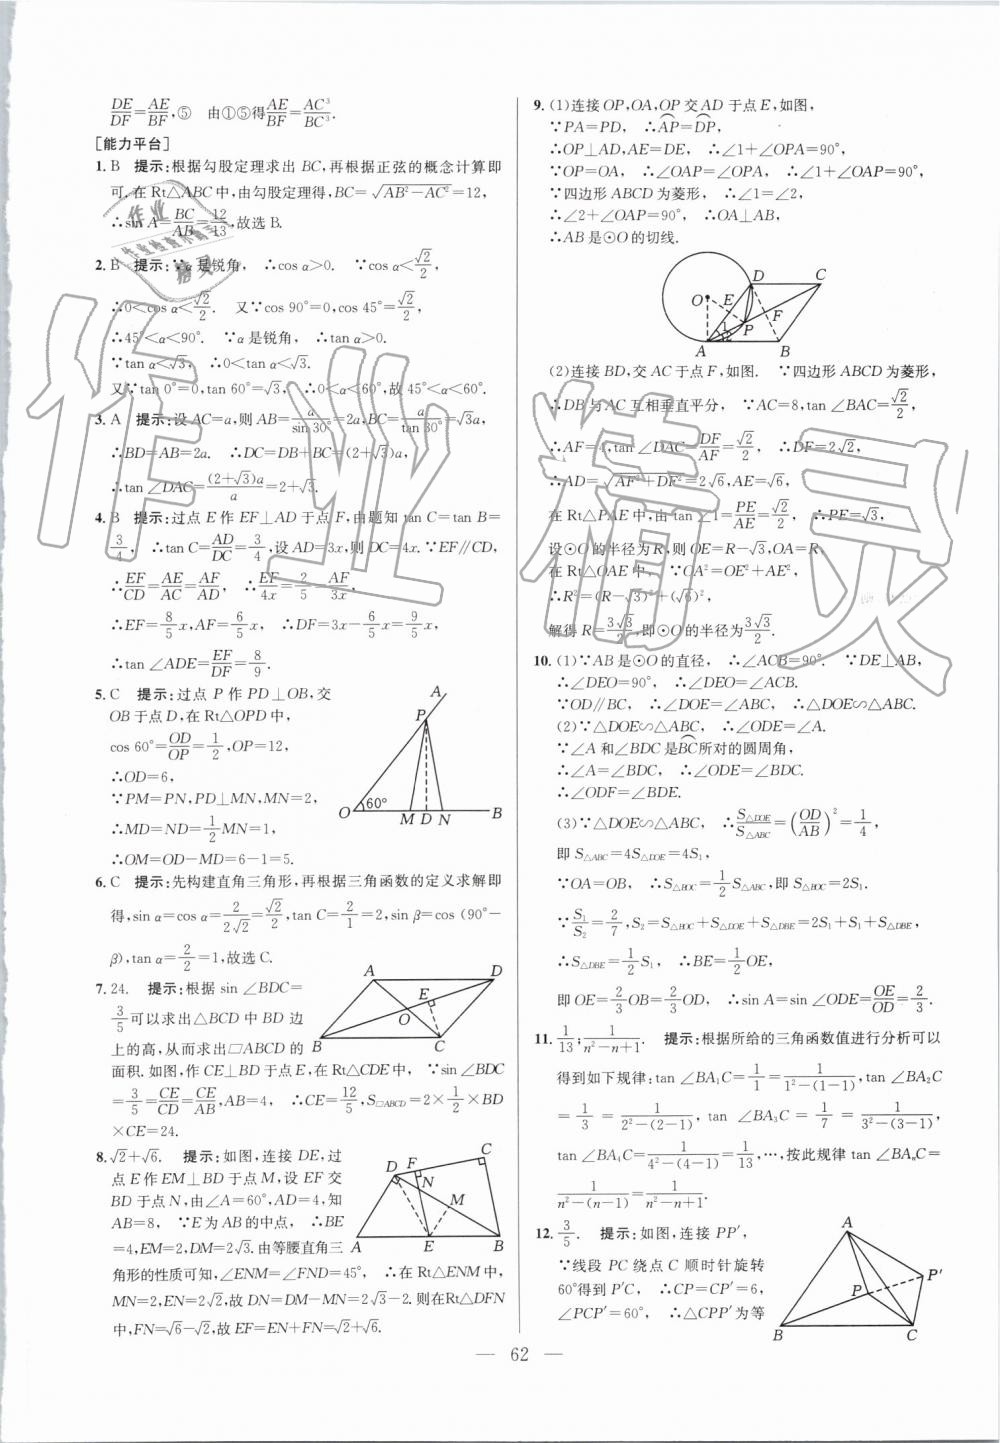 DE/DF=AE/BF,⑤　由①⑤得AE/BF=AC³/BC³.
[能力平台]
1. B　提示:根据勾股定理求出 BC,再根据正弦的概念计算即
可.在 Rt△ABC 中,由勾股定理得,BC=√(AB²-AC²)=12,
∴sin A=BC/AB=12/13,故选 B.
2. B　提示:∵α是锐角,∴cos α>0. ∵cos α<√2/2,
∴0<cos α<√2/2.　又∵cos 90°=0,cos 45°=√2/2,
∴45°<α<90°.　∵α是锐角,∴tan α>0.
∵tan α<√3,　∴0<tan α<√3.
又∵tan 0°=0,tan 60°=√3,　∴0<α<60°,故 45°<α<60°.
3. A　提示:设 AC=a,则 AB=a/sin 30°=2a,BC=a/tan 30°=√3a,
∴BD=AB=2a.　∴DC=DB+BC=(2+√3)a,
∴tan∠DAC=(2+√3)a/a=2+√3.
4. B　提示:过点 E 作 EF⊥AD 于点 F,由题知 tan C=tan B=
3/4,　∴tan C=AD/DC=3/4,设 AD=3x,则 DC=4x. ∵EF∥CD,
∴EF/CD=AE/AC=AF/AD,　∴EF/4x=2/5=AF/3x,
∴EF=8/5x,AF=6/5x,　∴DF=3x-6/5x=9/5x,
∴tan∠ADE=EF/DF=8/9.
5. C　提示:过点 P 作 PD⊥OB,交
OB 于点 D,在 Rt△OPD 中,
cos 60°=OD/OP=1/2,OP=12,
∴OD=6,
∵PM=PN,PD⊥MN,MN=2,
∴MD=ND=1/2MN=1,
∴OM=OD-MD=6-1=5.
A
P
O 60° M D N B
6. C　提示:先构建直角三角形,再根据三角函数的定义求解即
得,sin α=cos α=2/2√2=√2/2,tan C=2/1=2,sin β=cos (90°-
β),tan α=2/2=1,故选 C.
7. 24.　提示:根据 sin∠BDC=
3/5可以求出△BCD 中 BD 边
上的高,从而求出▱ABCD 的
面积.如图,作 CE⊥BD 于点 E,在 Rt△CDE 中,∵sin∠BDC
=3/5=CE/CD=CE/AB,AB=4,　∴CE=12/5,S▱ABCD=2×1/2×BD
×CE=24.
A D
E
O
B C
8. √2+√6.　提示:如图,连接 DE,过
点 E 作 EM⊥BD 于点 M,设 EF 交
BD 于点 N,由∠A=60°,AD=4,知
AB=8,　∵E 为 AB 的中点,　∴BE
=4,EM=2,DM=2√3.由等腰直角三
角形的性质可知,∠ENM=∠FND=45°,　∴在 Rt△ENM 中,
MN=2,EN=2√2,故 DN=DM-MN=2√3-2.则在Rt△DFN
中,FN=√6-√2,故 EF=EN+FN=√2+√6.
C
D F
N
M
A E B
9. (1)连接 OP,OA,OP 交 AD 于点 E,如图,
∵PA=PD,　∴AP=DP,
∴OP⊥AD,AE=DE,　∴∠1+∠OPA=90°,
∵OP=OA,　∴∠OAP=∠OPA,　∴∠1+∠OAP=90°,
∵四边形 ABCD 为菱形,　∴∠1=∠2,
∴∠2+∠OAP=90°,　∴OA⊥AB,
∴AB 是⊙O 的切线.
D C
O E
F
1 P
2
A B
(2)连接 BD,交 AC 于点 F,如图.　∵四边形 ABCD 为菱形,
∴DB 与 AC 互相垂直平分,　∵AC=8,tan∠BAC=√2/2,
∴AF=4,tan∠DAC=DF/AF=√2/2,　∴DF=2√2,
∴AD=√(AF²+DF²)=2√6,AE=√6,
在 Rt△PAE 中,由 tan∠1=PE/AE=√2/2,　∴PE=√3,
设⊙O 的半径为 R,则 OE=R-√3,OA=R,
在 Rt△OAE 中,　∵OA²=OE²+AE²,
∴R²=(R-√3)²+(√6)²,
解得 R=3√3/2,即⊙O 的半径为3√3/2.
10. (1)∵AB 是⊙O 的直径,　∴∠ACB=90°.　∵DE⊥AB,
∴∠DEO=90°,　∴∠DEO=∠ACB.
∵OD∥BC,　∴∠DOE=∠ABC,　∴△DOE∽△ABC.
(2)∵△DOE∽△ABC,　∴∠ODE=∠A.
∵∠A 和∠BDC 是BC所对的圆周角,
∴∠A=∠BDC,　∴∠ODE=∠BDC.
∴∠ODF=∠BDE.
(3)∵△DOE∽△ABC,　∴S△DOE/S△ABC=(OD/AB)²=1/4,
即 S△ABC=4S△DOE=4S₁,
∵OA=OB,　∴S△BOC=1/2S△ABC,即 S△BOC=2S₁.
∵S₁/S₂=2/7,S₂=S△BOC+S△DOE+S△DBE=2S₁+S₁+S△DBE,
∴S△DBE=1/2S₁,　∴BE=1/2OE,
即 OE=2/3OB=2/3OD,　∴sin A=sin∠ODE=OE/OD=2/3.
11. 1/13;1/(n²-n+1).　提示:根据所给的三角函数值进行分析可以
得到如下规律:tan∠BA₁C=1/1=1/(1²-(1-1)),tan∠BA₂C
=1/3=1/(2²-(2-1)),tan∠BA₃C=1/7=1/(3²-(3-1)),
tan∠BA₄C=1/(4²-(4-1))=1/13,…,按此规律 tan∠BAₙC=
1/(n²-(n-1))=1/(n²-n+1).
12. 3/5.　提示:如图,连接 PP′,
∵线段 PC 绕点 C 顺时针旋转
60°得到 P′C,　∴CP=CP′=6,
∠PCP′=60°,　∴△CPP′为等
A
P P′
B C
— 62 —
作业精灵